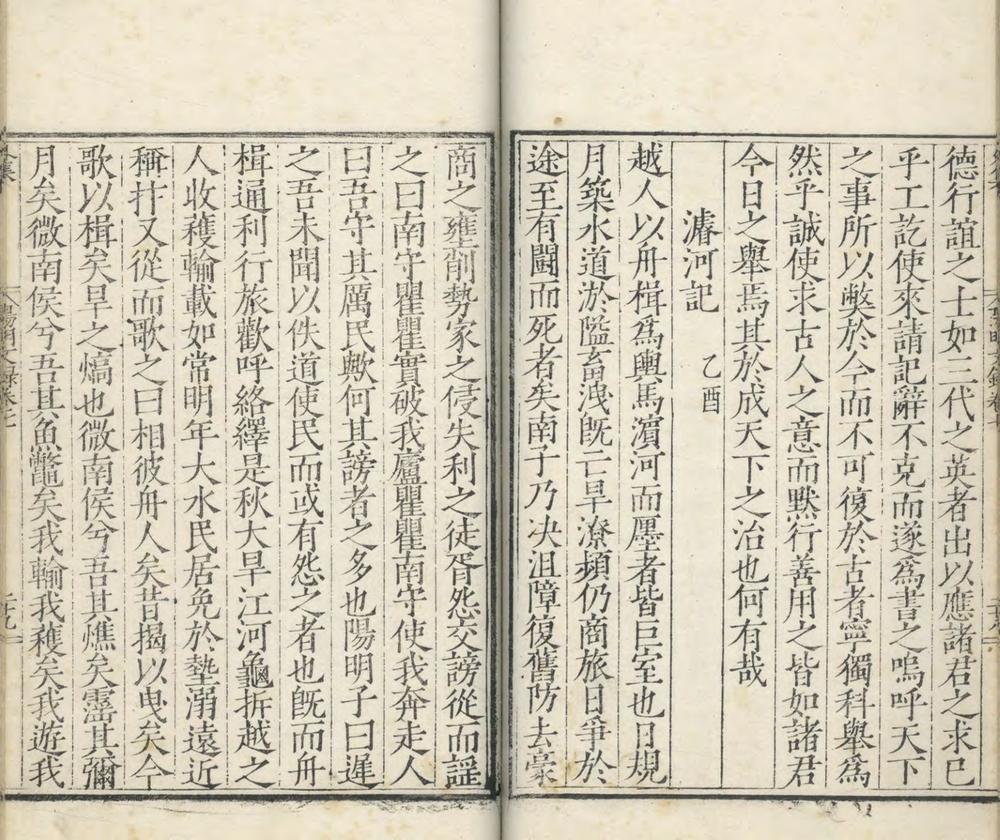 德行誼之士如三代之英者出以應諸君之求已
乎工訖使來請記辭不克而遂爲書之嗚呼天下
之事所以獘於今而不可復於古者寧獨科舉爲
然乎誠使求古人之意而黙行善用之皆如諸君
今日之舉焉其於成天下之治也何有哉
濬河記 乙酉
越人以舟楫爲輿馬濵河而廛者皆巨室也日規
月築水道淤隘畜洩旣亡旱潦頻仍商旅日爭於
途至有鬭而死者矣南子乃决沮障復舊防去豪
商之壅削勢家之侵失利之徒胥怨交謗從而謡
之曰南守瞿瞿實破我廬瞿瞿南守使我奔走人
曰吾守其厲民歟何其謗者之多也陽明子曰遲
之吾未聞以佚道使民而或有怨之者也旣而舟
楫通利行旅歡呼絡繹是秋大旱江河龜拆越之
人收穫輸載如常明年大水民居免於墊溺遠近
稱忭又從而歌之曰相彼舟人矣昔揭以曳矣今
歌以楫矣旱之熇也微南侯兮吾其燋矣霪其彌
月矣微南侯兮吾其魚鼈矣我輸我穫矣我遊我
陽明文錄卷七
二十九